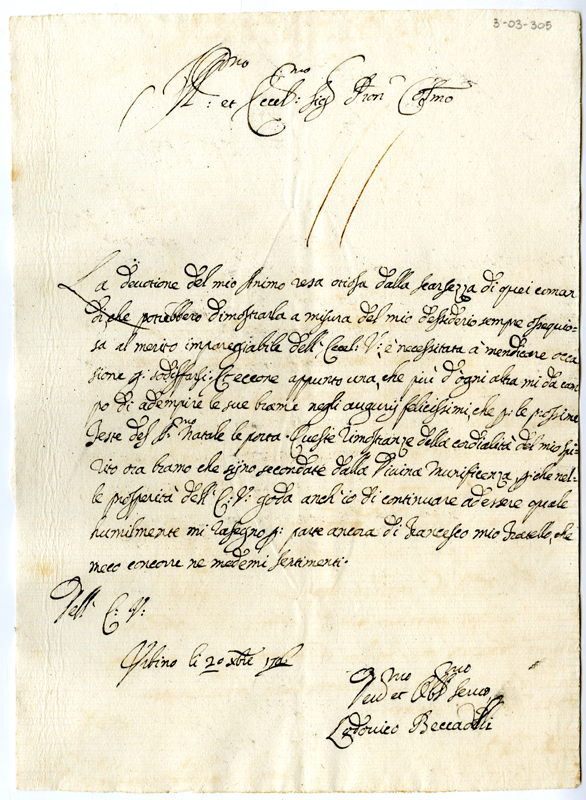 3-03-305
Ill.mo et Eccel.mo Sig.r Pron Col.mo
La devotione del mio Animo resa otiosa dalla scarsezza di quei coman
di che potrebbero dimostrarla a misura del mio desiderio sempre ossequio-
sa al merito impareggiabile dell' Eccel: V: è necessitata à mendicare occa
sione p: sodisfarsi: Et eccone appunto una, che più d'ogni altra mi dà cam
po di adempire le sue brame negli augurij felicissimi, che p: le prossime
feste del S.mo Natale le porta. Queste rimostranze della cordialità del mio Spi
rito ora bramo che sijno secondate dalla Divina Munificenza, p: che nel-
le prosperità dell' E: V: goda anch'io di continuare ad essere quale
humilmente mi rasegno p: parte ancora di Francesco mio fratello, che
meco concorre ne medemi sentimenti.
Dell' E: V:
Urbino li 20 Xbre
Dev.mo et Obl.mo Servo
Lodovico Beccadelli